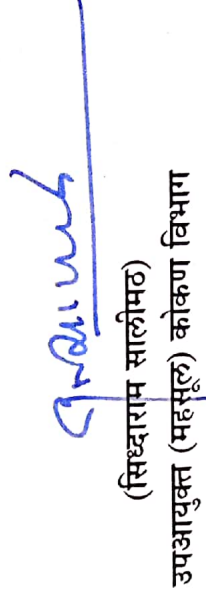 (सिध्दाराम सालीमठ)
उपआयुक्त (महसूल) कोकण विभाग